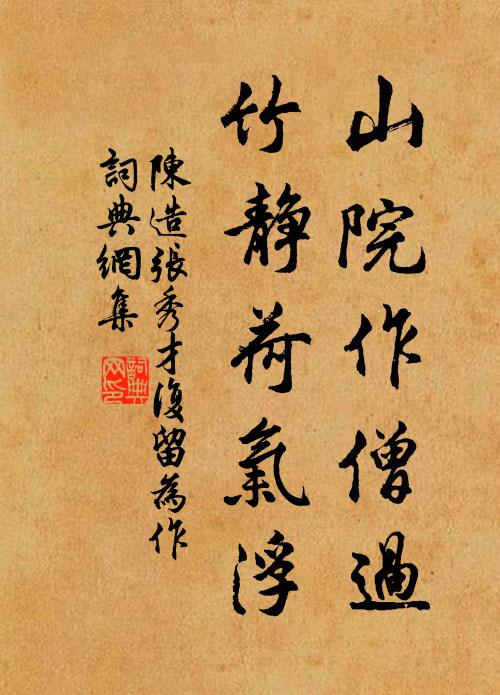 山院作僧過
竹靜荷氣浮
陳造張秀才復留為作
詞典網集
詞典网印